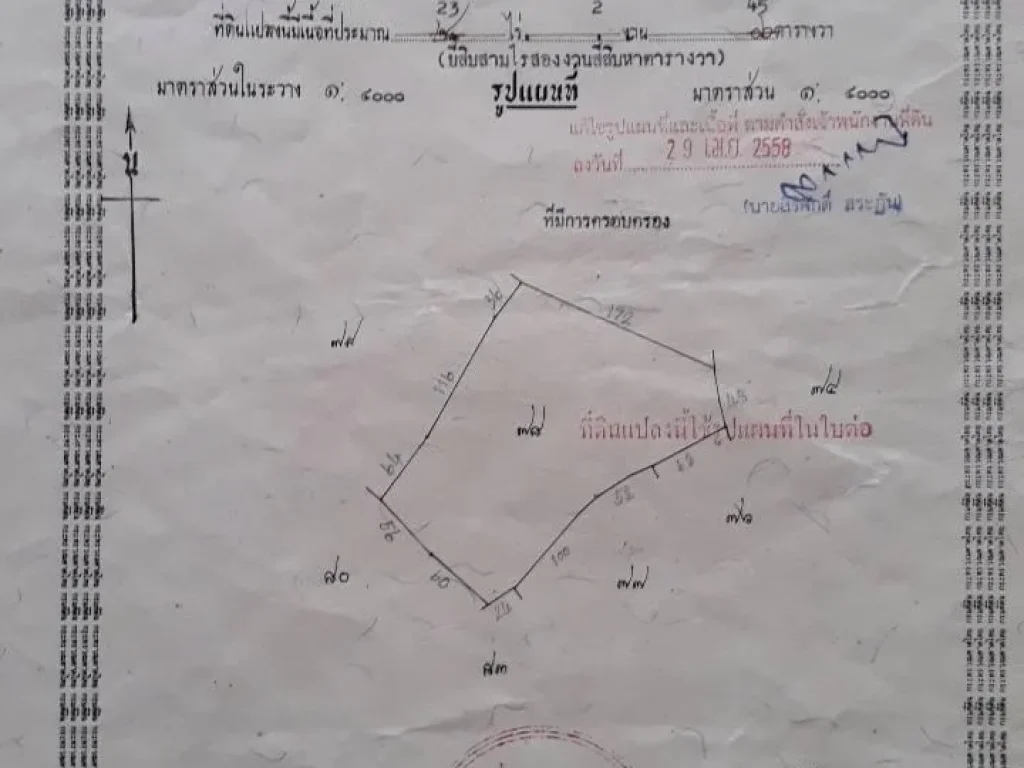 23 2 45
ที่ดินแปลงนี้มีเนื้อที่ประมาณ ไร่ งาน ตารางวา
(ยี่สิบสามไร่สองงานสี่สิบห้าตารางวา)
มาตราส่วนในระวาง ๑: ๔๐๐๐ รูปแผนที่ มาตราส่วน ๑: ๔๐๐๐
แก้ไขรูปแผนที่และเนื้อที่ ตามคำสั่งเจ้าพนักงานที่ดิน
ลงวันที่ 29 เม.ย. 2558
น
ที่มีการครอบครอง
36
172
๗๙
116
๗๔
45
๗๘
ที่ดินแปลงนี้ใช้รูปแผนที่ในใบต่อ
64
62
52
๗๖
56
100
๘๐
60
๗๗
24
๘๓